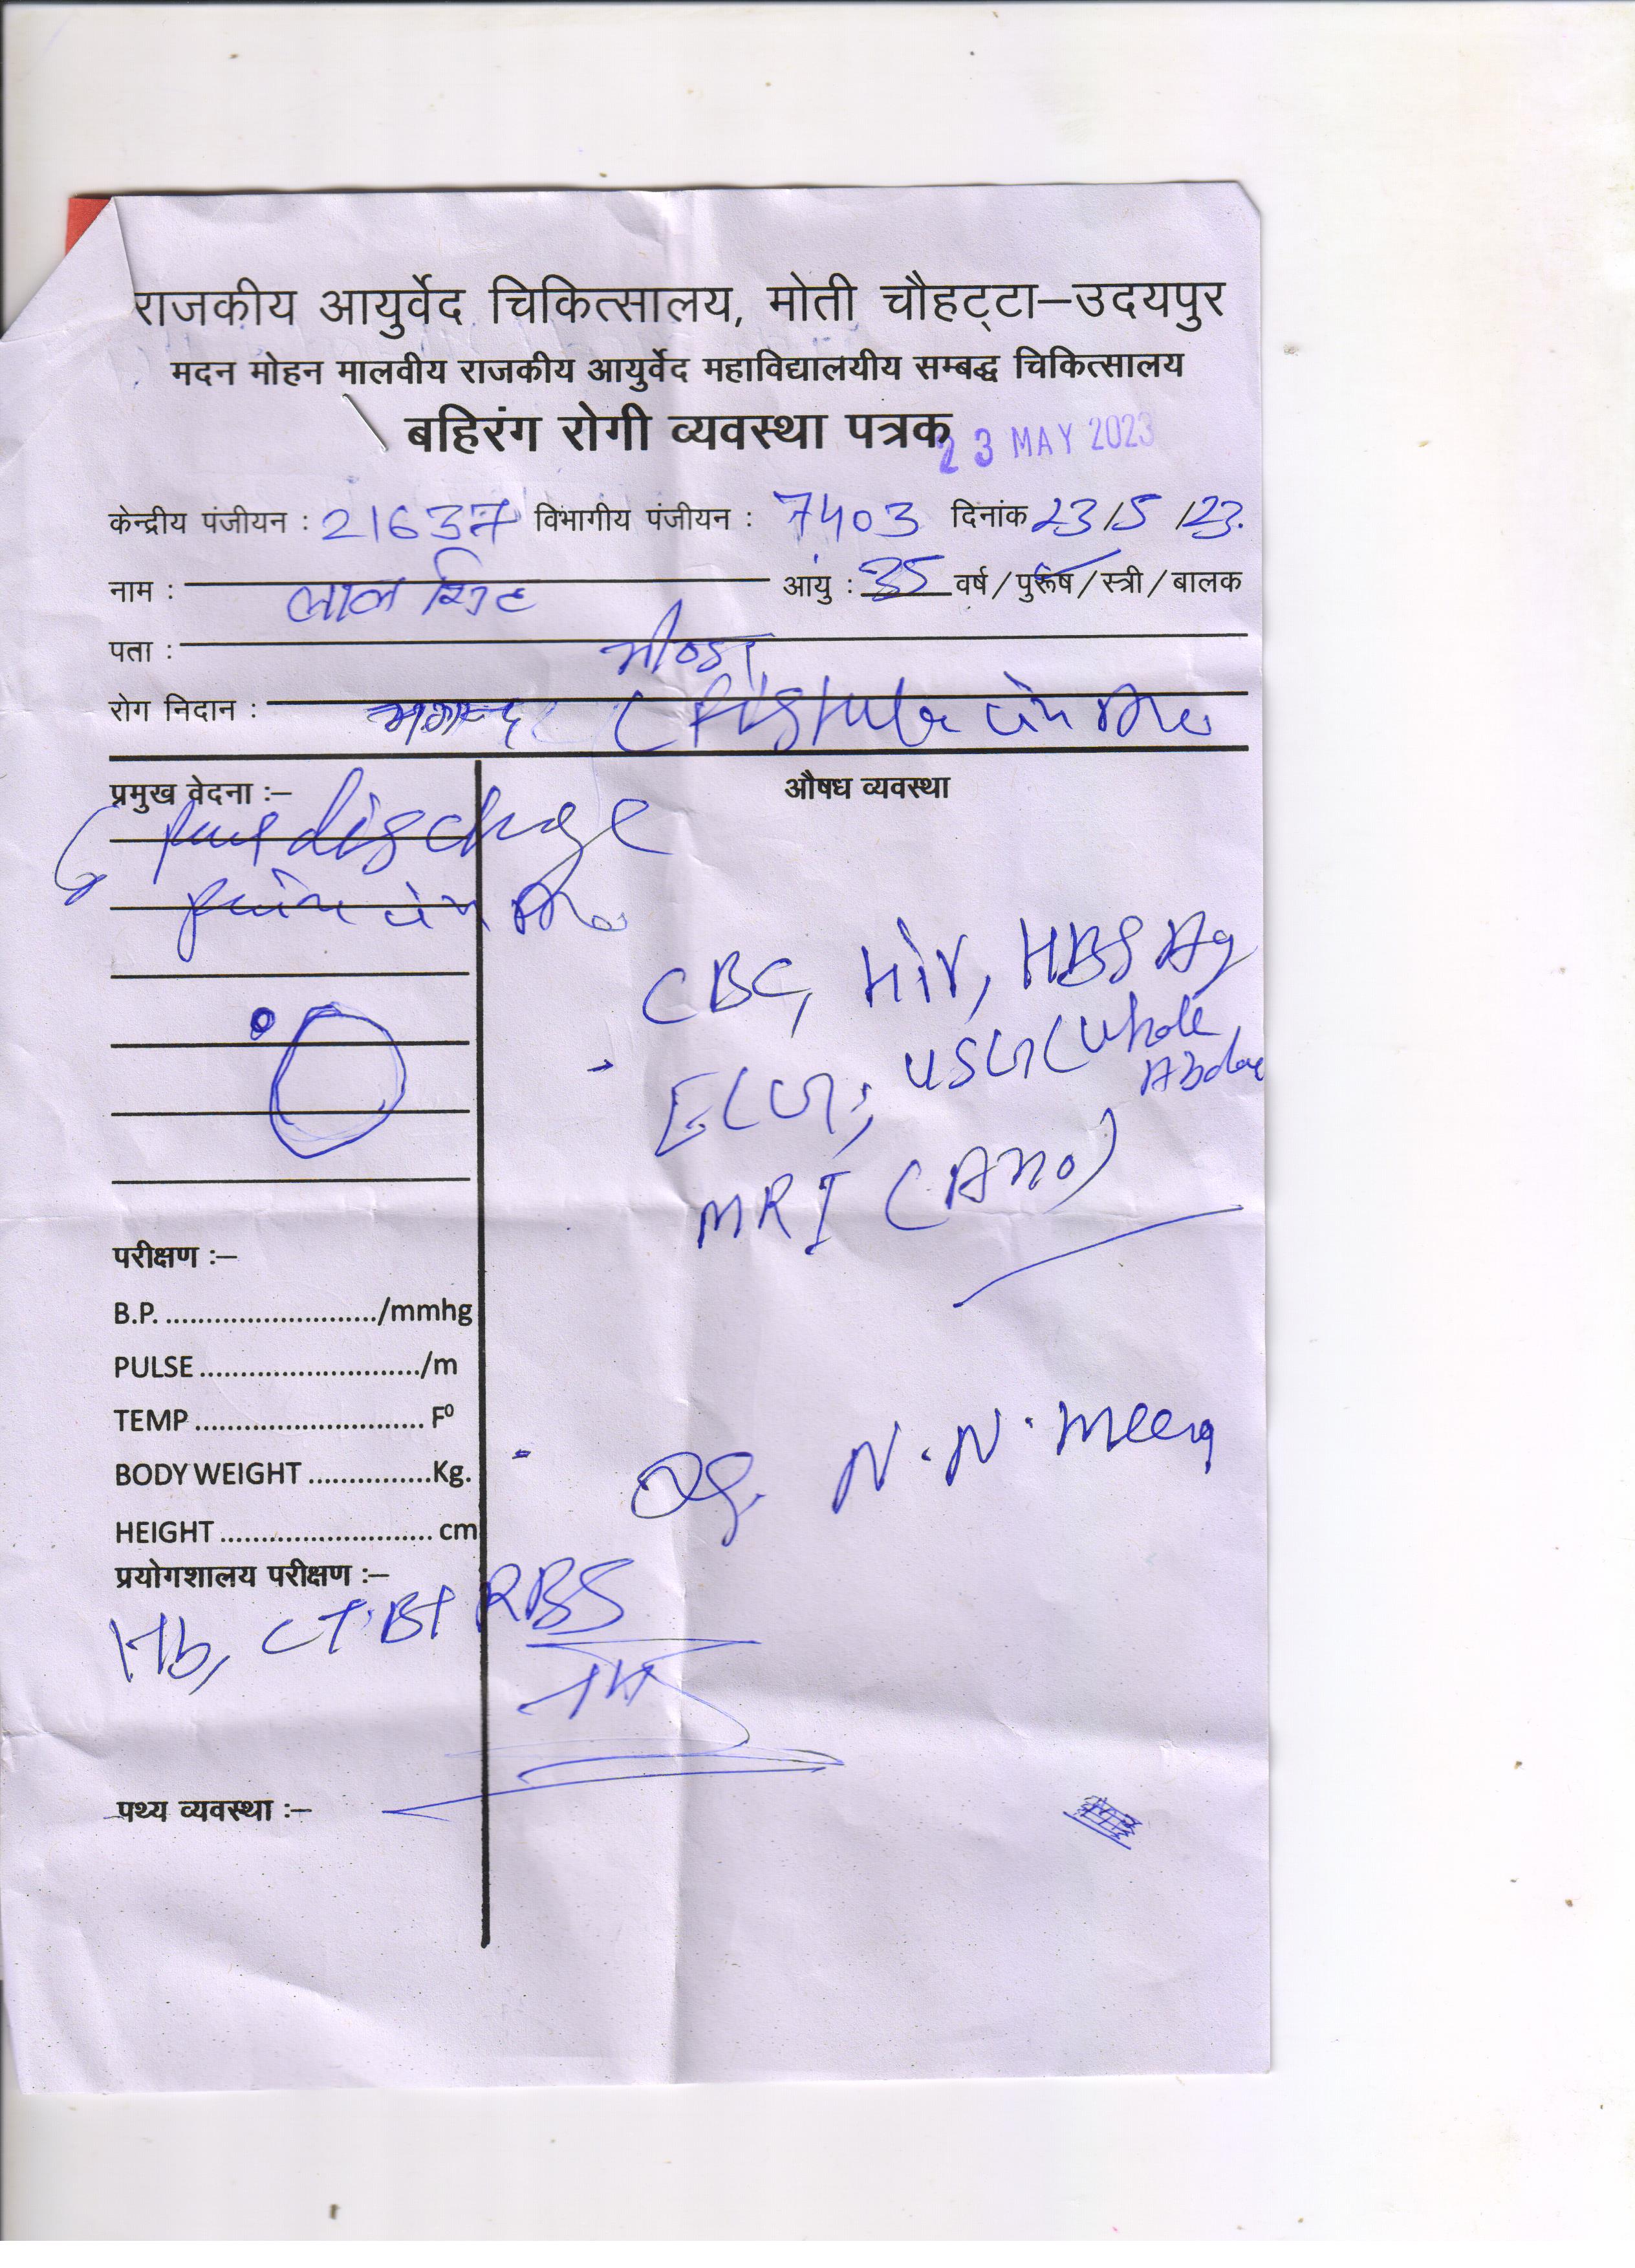 राजकीय आयुर्वेद चिकित्सालय, मोती चौहट्टा–उदयपुर
मदन मोहन मालवीय राजकीय आयुर्वेद महाविद्यालयीय सम्बद्ध चिकित्सालय
बहिरंग रोगी व्यवस्था पत्रक
23 MAY 2023
केन्द्रीय पंजीयन : 21637 विभागीय पंजीयन : 7403 दिनांक 23/5/23.
नाम : लाल सिंह आयु : 35 वर्ष/पुरूष/स्त्री/बालक
पता :
रोग निदान : भगन्दर ( Fistula in Ano
प्रमुख वेदना :–
औषध व्यवस्था
pus discharge
in Ano
CBC, HIV, HBSAg
ECG, USG (Whole
Abdome
MRI (Ano)
परीक्षण :–
B.P. ........................../mmhg
PULSE ............................/m
TEMP ............................ F⁰
BODY WEIGHT ...............Kg.
HEIGHT .......................... cm
N.N. Meena
प्रयोगशालय परीक्षण :–
Hb, CT BT RBS
पथ्य व्यवस्था :–